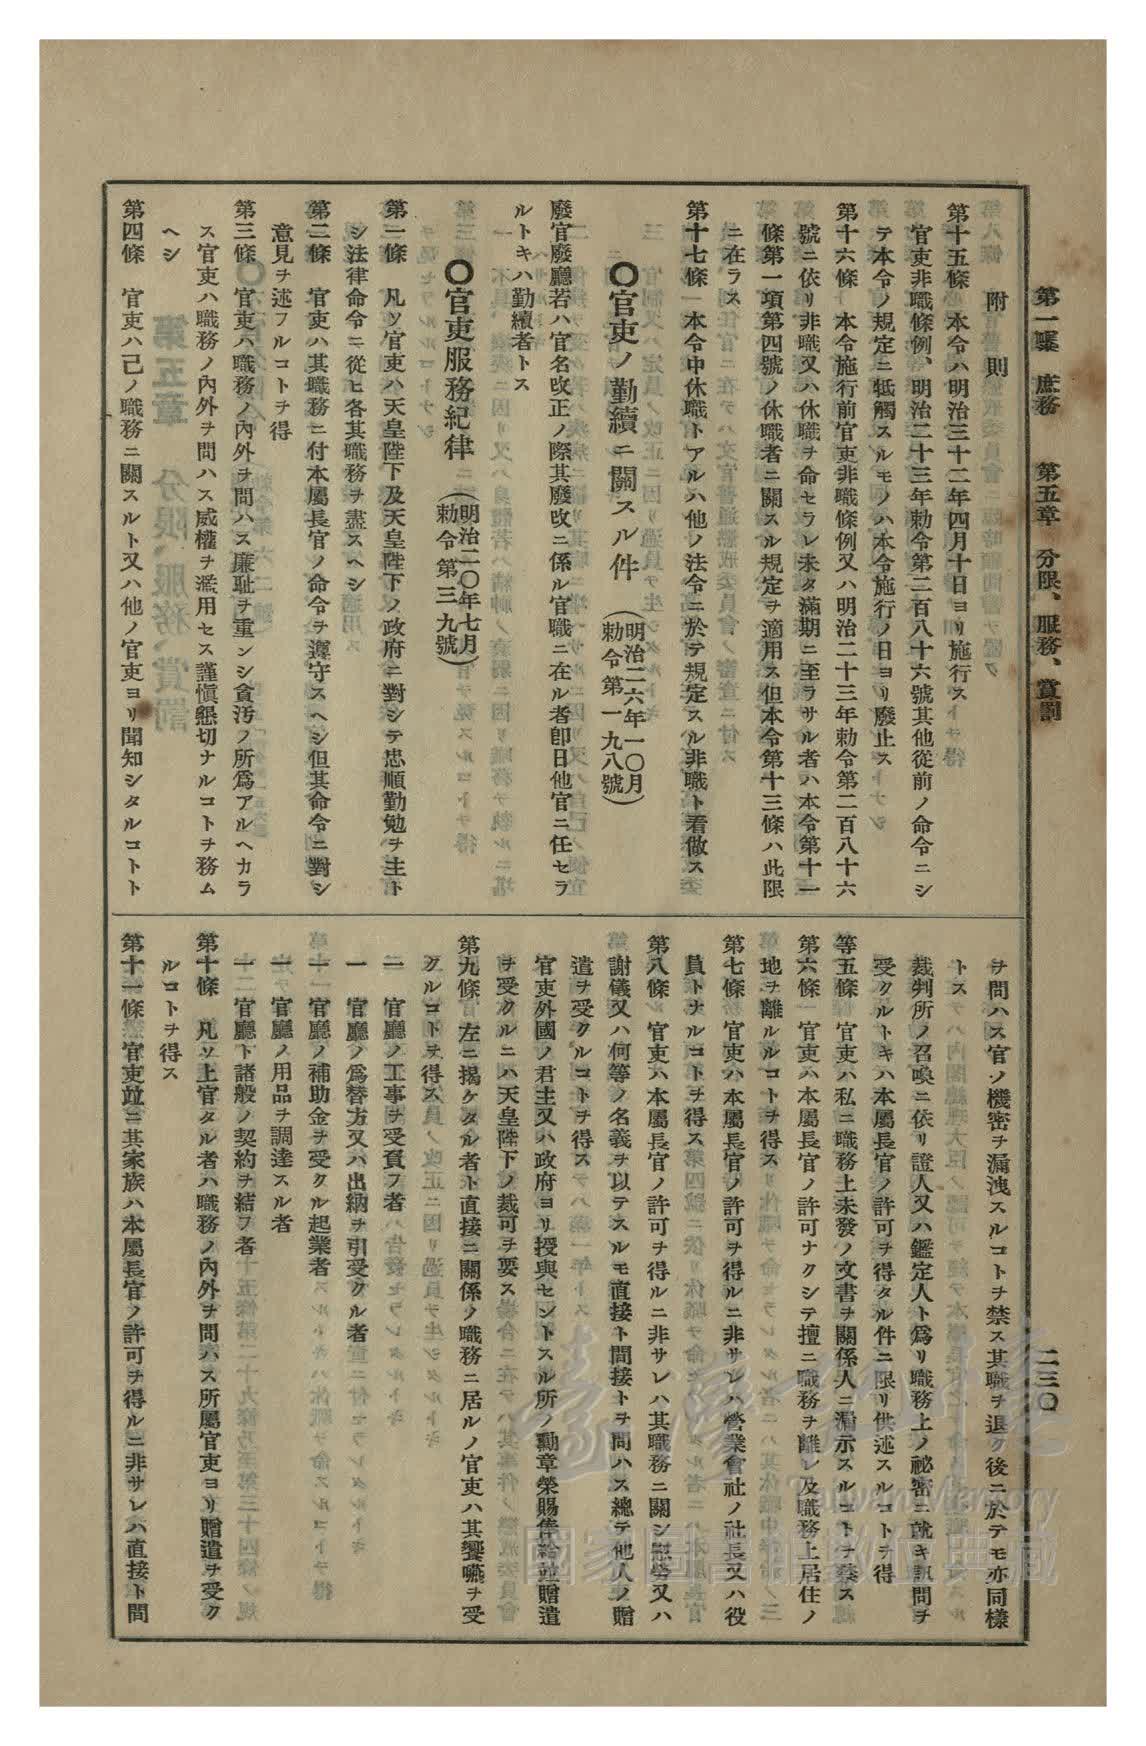 第一類　庶務　　第五章　分限、服務、賞罰
二三〇
附　則
第十五條　本令ハ明治三十二年四月十日ヨリ施行ス
官吏非職條例、明治二十三年勅令第二百八十六號其他從前ノ命令ニシ
テ本令ノ規定ニ牴觸スルモノハ本令施行ノ日ヨリ廢止ス
第十六條　本令施行前官吏非職條例又ハ明治二十三年勅令第二百八十六
號ニ依リ非職又ハ休職ヲ命セラレ未タ滿期ニ至ラサル者ハ本令第十一
條第一項第四號ノ休職者ニ關スル規定ヲ適用ス但本令第十三條ハ此限
ニ在ラス
第十七條　本令中休職トアルハ他ノ法令ニ於テ規定スル非職ト看做ス
〇官吏ノ勤續ニ關スル件（明治二六年一〇月
勅令第一九八號）
廢官廢廳若ハ官名改正ノ際其廢改ニ係ル官職ニ在ル者卽日他官ニ任セラ
ルトキハ勤續者トス
〇官吏服務紀律（明治二〇年七月
勅令第三九號）
第一條　凡ソ官吏ハ天皇陛下及天皇陛下ノ政府ニ對シテ忠順勤勉ヲ主ト
シ法律命令ニ從ヒ各其職務ヲ盡スヘシ
第二條　官吏ハ其職務ニ付本屬長官ノ命令ヲ遵守スヘシ但其命令ニ對シ
意見ヲ述フルコトヲ得
第三條　官吏ハ職務ノ內外ヲ問ハス廉耻ヲ重ンシ貪汚ノ所爲アルヘカラ
ス官吏ハ職務ノ內外ヲ問ハス威權ヲ濫用セス謹愼懇切ナルコトヲ務ム
ヘシ
第四條　官吏ハ己ノ職務ニ關スルト又ハ他ノ官吏ヨリ聞知シタルコトト
ヲ問ハス官ノ機密ヲ漏洩スルコトヲ禁ス其職ヲ退ク後ニ於テモ亦同樣
トス
裁判所ノ召喚ニ依リ證人又ハ鑑定人ト爲リ職務上ノ祕密ニ就キ訊問ヲ
受クルトキハ本屬長官ノ許可ヲ得タル件ニ限リ供述スルコトヲ得
等五條　官吏ハ私ニ職務上未發ノ文書ヲ關係人ニ漏示スルコトヲ禁ス
第六條　官吏ハ本屬長官ノ許可ナクシテ擅ニ職務ヲ離レ及職務上居住ノ
地ヲ離ルルコトヲ得ス
第七條　官吏ハ本屬長官ノ許可ヲ得ルニ非サレハ營業會社ノ社長又ハ役
員トナルコトヲ得ス
第八條　官吏ハ本屬長官ノ許可ヲ得ルニ非サレハ其職務ニ關シ慰勞又ハ
謝儀又ハ何等ノ名義ヲ以テスルモ直接ト間接トヲ問ハス總テ他人ノ贈
遺ヲ受クルコトヲ得ス
官吏外國ノ君主又ハ政府ヨリ授與セントスル所ノ勳章榮賜俸給並贈遺
ヲ受クルニハ天皇陛下ノ裁可ヲ要ス
第九條　左ニ揭ケタル者ト直接ニ關係ノ職務ニ居ルノ官吏ハ其饗讌ヲ受
クルコトヲ得ス
一　官廳ノ工事ヲ受負フ者
一　官廳ノ爲替方又ハ出納ヲ引受クル者
一　官廳ノ補助金ヲ受クル起業者
一　官廳ノ用品ヲ調達スル者
一　官廳ト諸般ノ契約ヲ結フ者
第十條　凡ソ上官タル者ハ職務ノ內外ヲ問ハス所屬官吏ヨリ贈遺ヲ受ク
ルコトヲ得ス
第十一條　官吏竝ニ其家族ハ本屬長官ノ許可ヲ得ルニ非サレハ直接ト間
臺灣記憶
Taiwan Memory
國家圖書館數位典藏